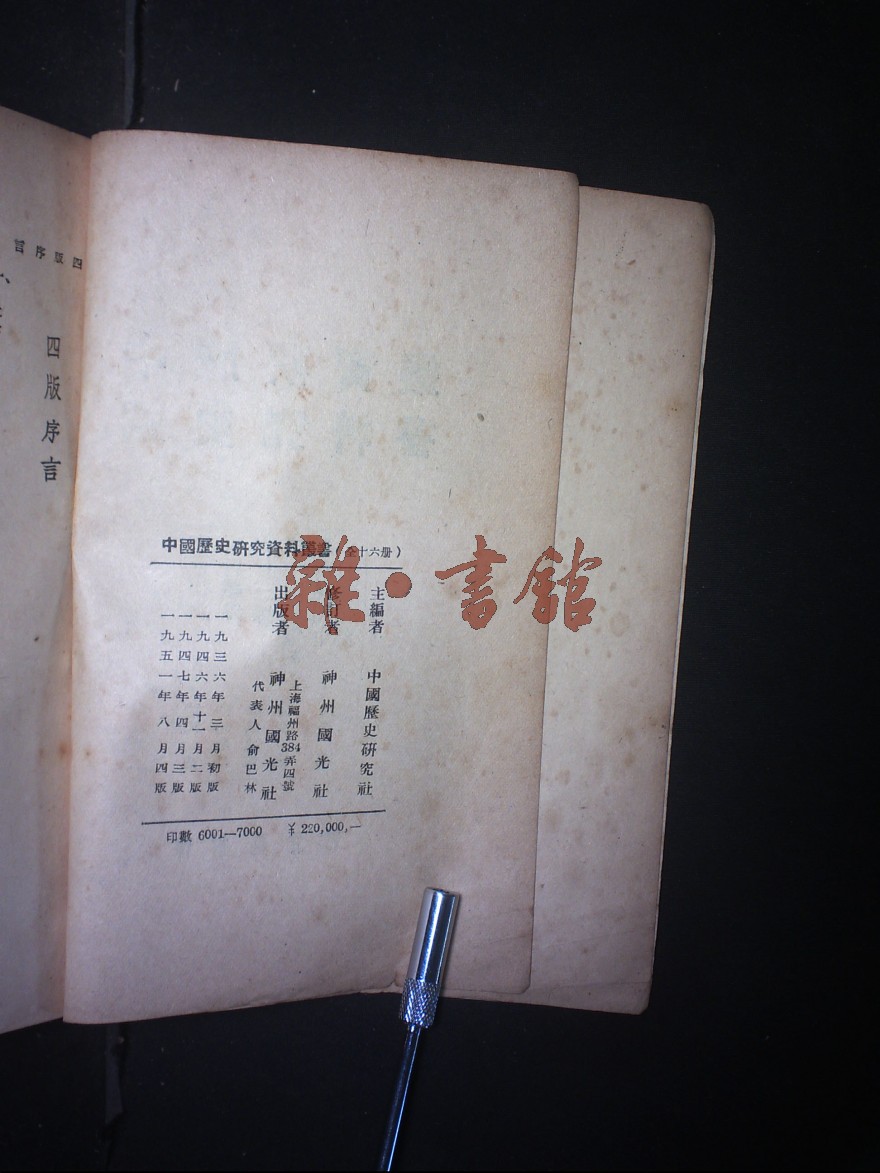 中國歷史研究資料叢書（全十六册）
主編者　中國歷史研究社
修訂者　神州國光社
出版者　神州國光社
上海福州路384弄四號
代表人俞巴林
一九三六年三月初版
一九四六年十一月二版
一九四七年四月三版
一九五一年八月四版
印數 6001—7000　￥220,000,—
四版序言
四版序言
雜·書館